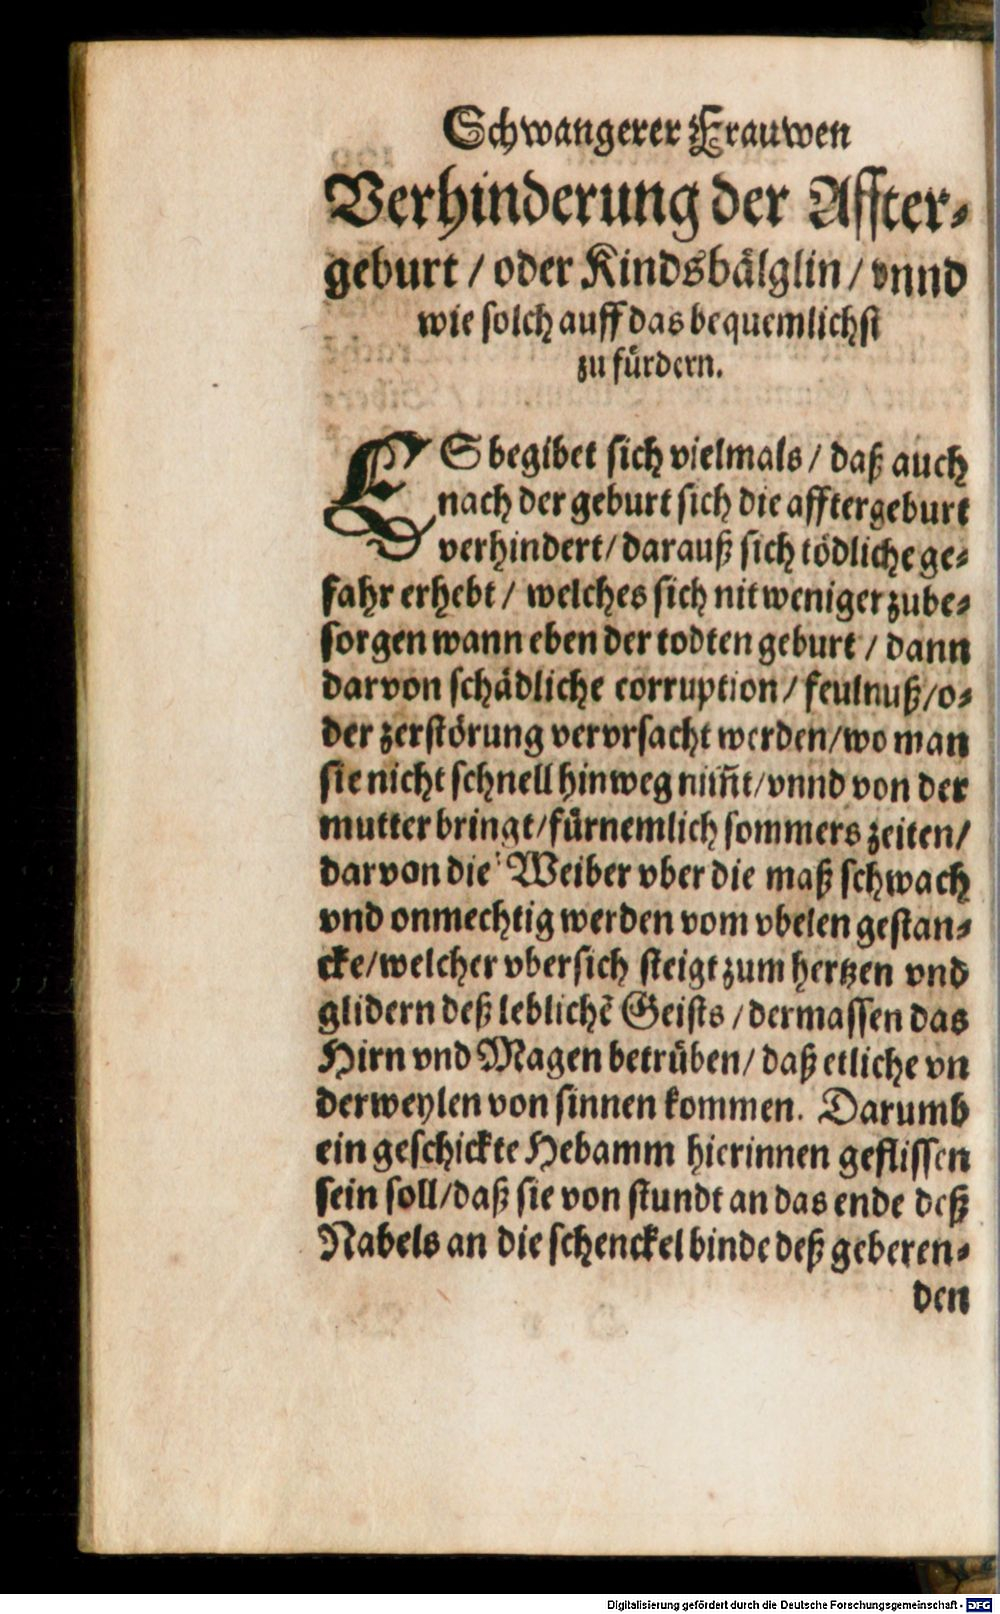 Schwangerer Frauwen
Verhinderung der Affter-
geburt / oder Kindsbålglin / vnnd
wie solch auff das bequemlichst
zu fůrdern.
ES begibet sich vielmals / daß auch
nach der geburt sich die afftergeburt
verhindert / darauß sich tödliche ge-
fahr erhebt / welches sich nit weniger zube-
sorgen wann eben der todten geburt / dann
darvon schådliche corruption / feulnuß / o-
der zerstörung vervrsacht werden / wo man
sie nicht schnell hinweg nim̃t / vnnd von der
mutter bringt / fůrnemlich sommers zeiten /
darvon die Weiber vber die maß schwach
vnd onmechtig werden vom vbelen gestan-
cke / welcher vbersich steigt zum hertzen vnd
glidern deß leblichẽ Geists / dermassen das
Hirn vnd Magen betrůben / daß etliche vn
derweylen von sinnen kommen. Darumb
ein geschickte Hebamm hierinnen geflissen
sein soll / daß sie von stundt an das ende deß
Nabels an die schenckel binde deß geberen-
den
Digitalisierung gefördert durch die Deutsche Forschungsgemeinschaft - DFG